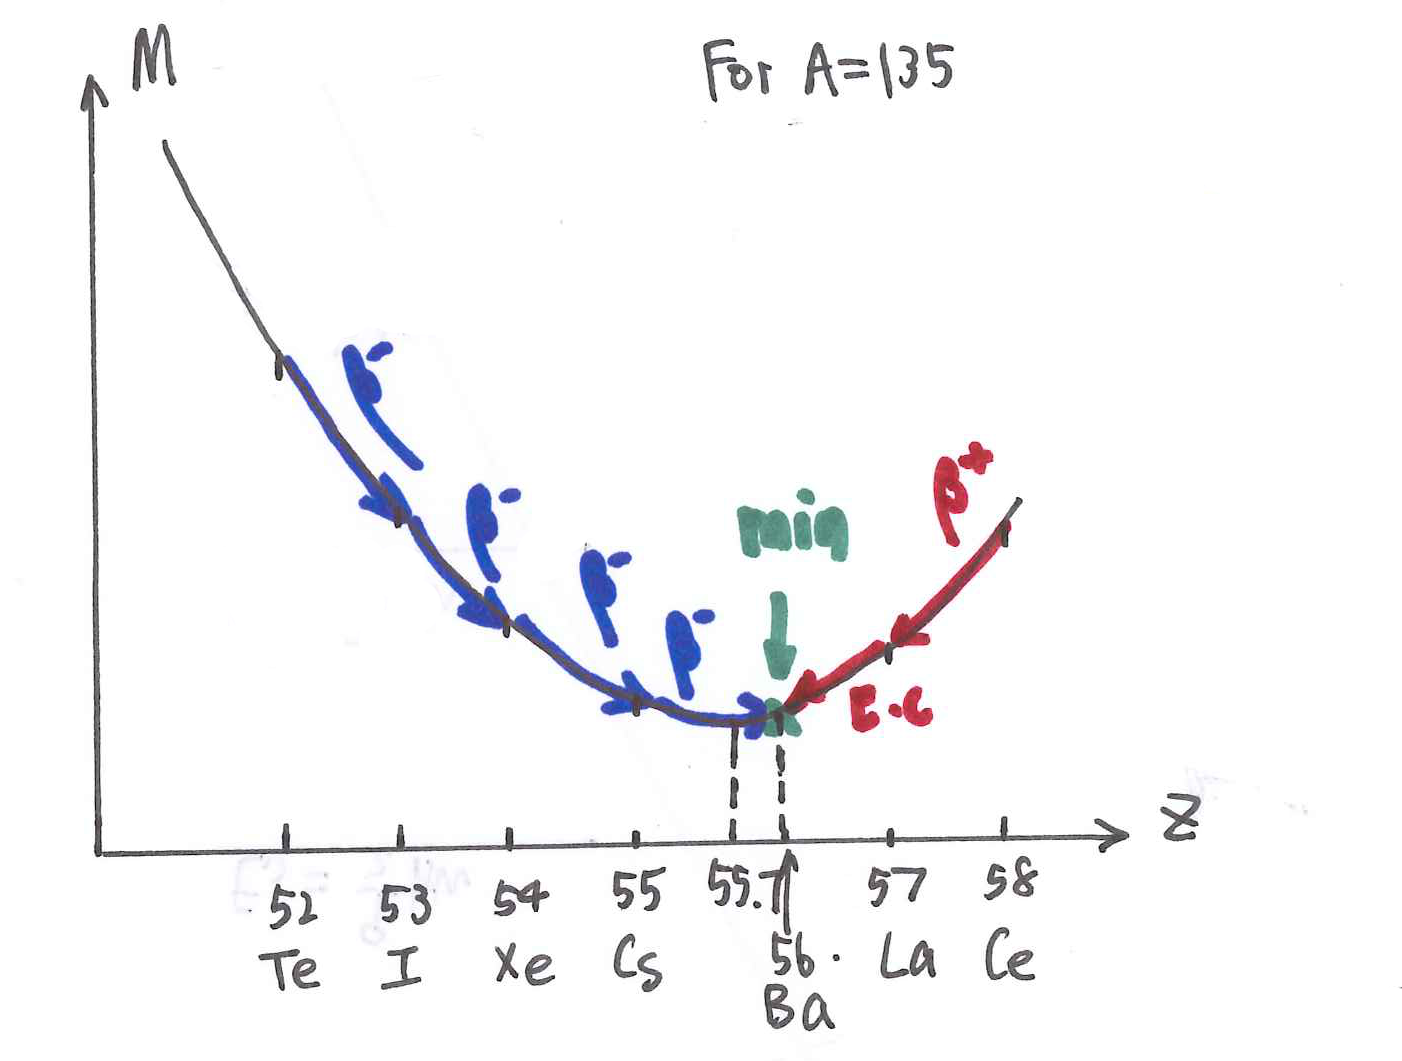 M
For A=135
β⁻
β⁻
β⁻
β⁻
min
β⁺
E.C
Z
52 53 54 55 55.7 57 58
Te I Xe Cs 56. La Ce
Ba